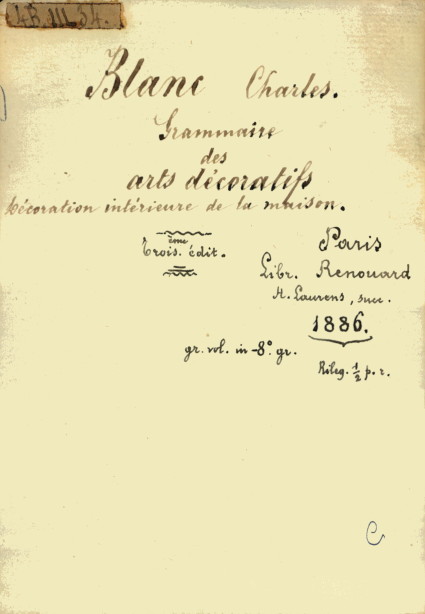 4B.III.34.
Blanc Charles.
Grammaire
des
arts décoratifs
Décoration intérieure de la maison.
Trois.ème édit.
Paris
Libr. Renouard
H. Laurens, succ.
1886.
gr. vol. in-8º. gr.
Rileg. 1/2 p. r.
C